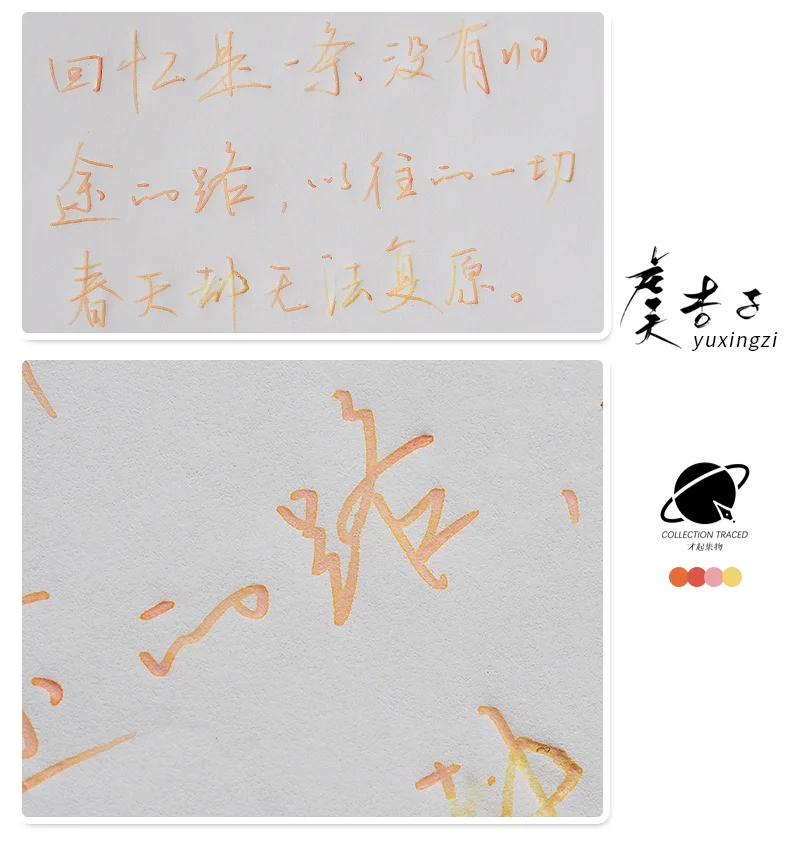 回忆是一条没有归
途的路，以往的一切
春天却无法复原。
虞杏子
yuxingzi
的路
COLLECTION TRACED
才起集物